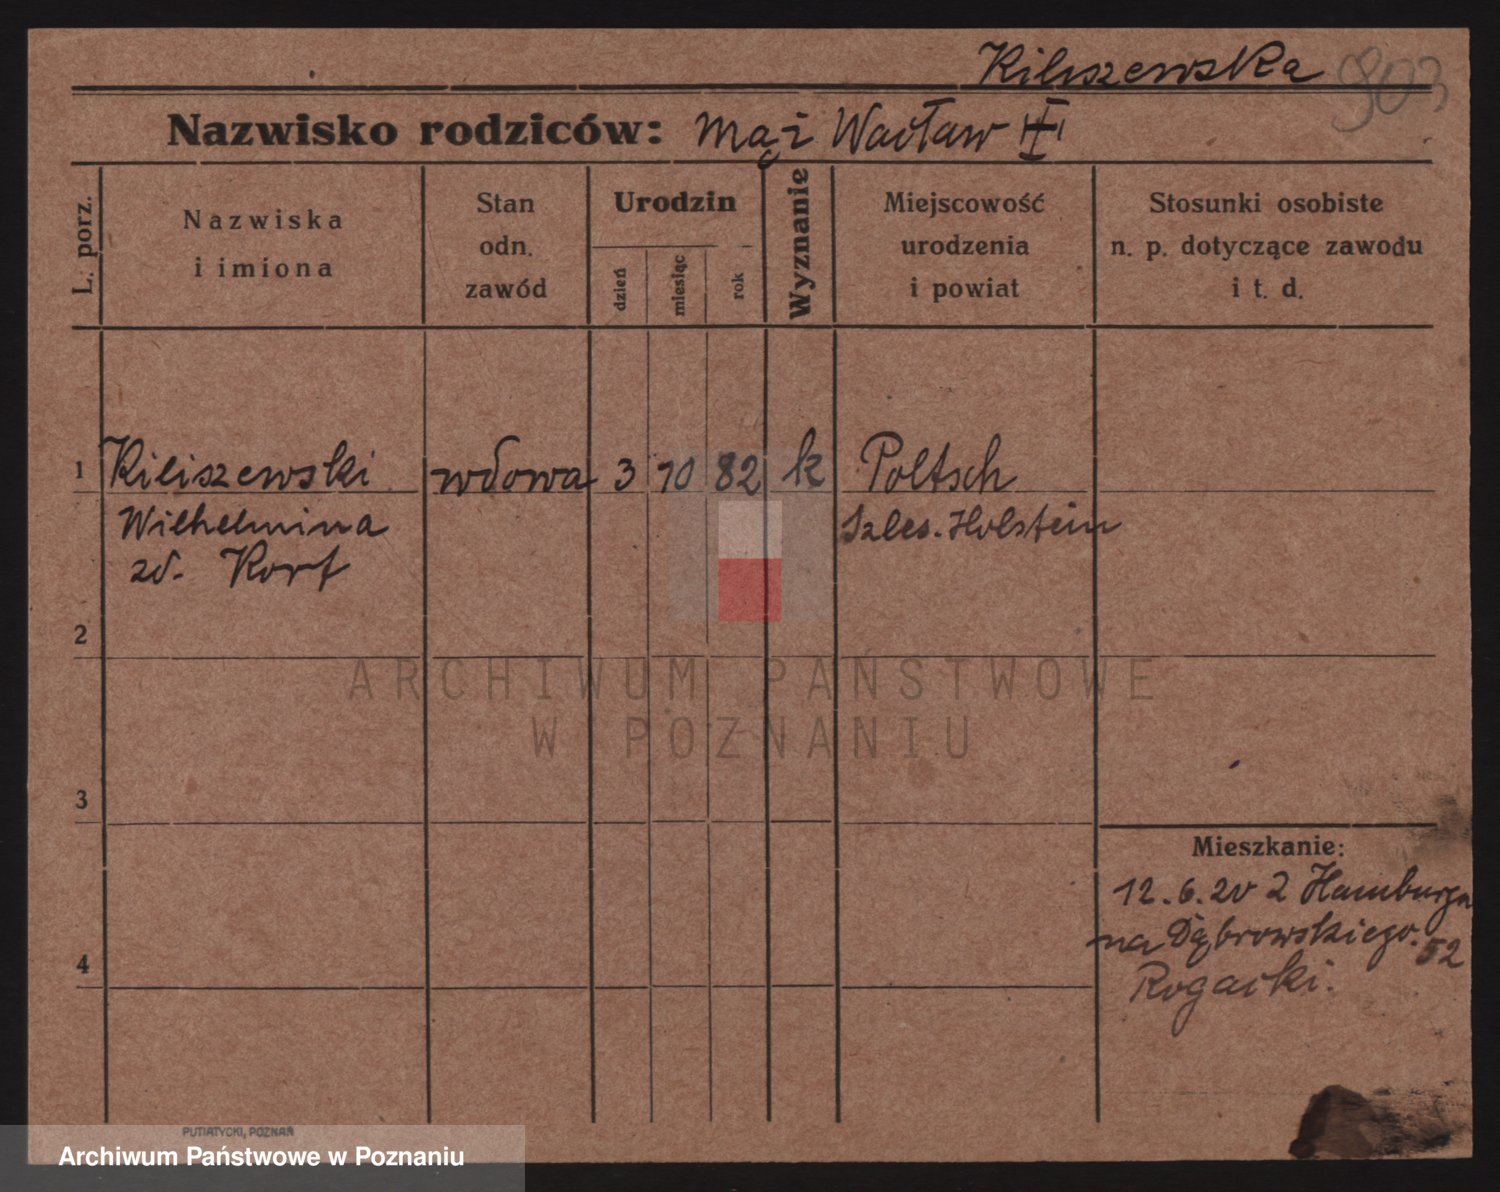 Kiliszewska 903
Nazwisko rodziców: mąż Wacław
L. porz.
Nazwiska
i imiona
Stan
odn.
zawód
Urodzin
dzień
miesiąc
rok
Wyznanie
Miejscowość
urodzenia
i powiat
Stosunki osobiste
n. p. dotyczące zawodu
i t. d.
1 Kiliszewski wdowa 3 10 82 k Poltsch
Wilhelmina Szles. Holstein
zd. Korf
2
ARCHIWUM PAŃSTWOWE
W POZNANIU
3
Mieszkanie:
12.6.20 z Hamburga
na Dąbrowskiego. 52
4 Rogacki.
PUTIATYCKI, POZNAŃ
Archiwum Państwowe w Poznaniu